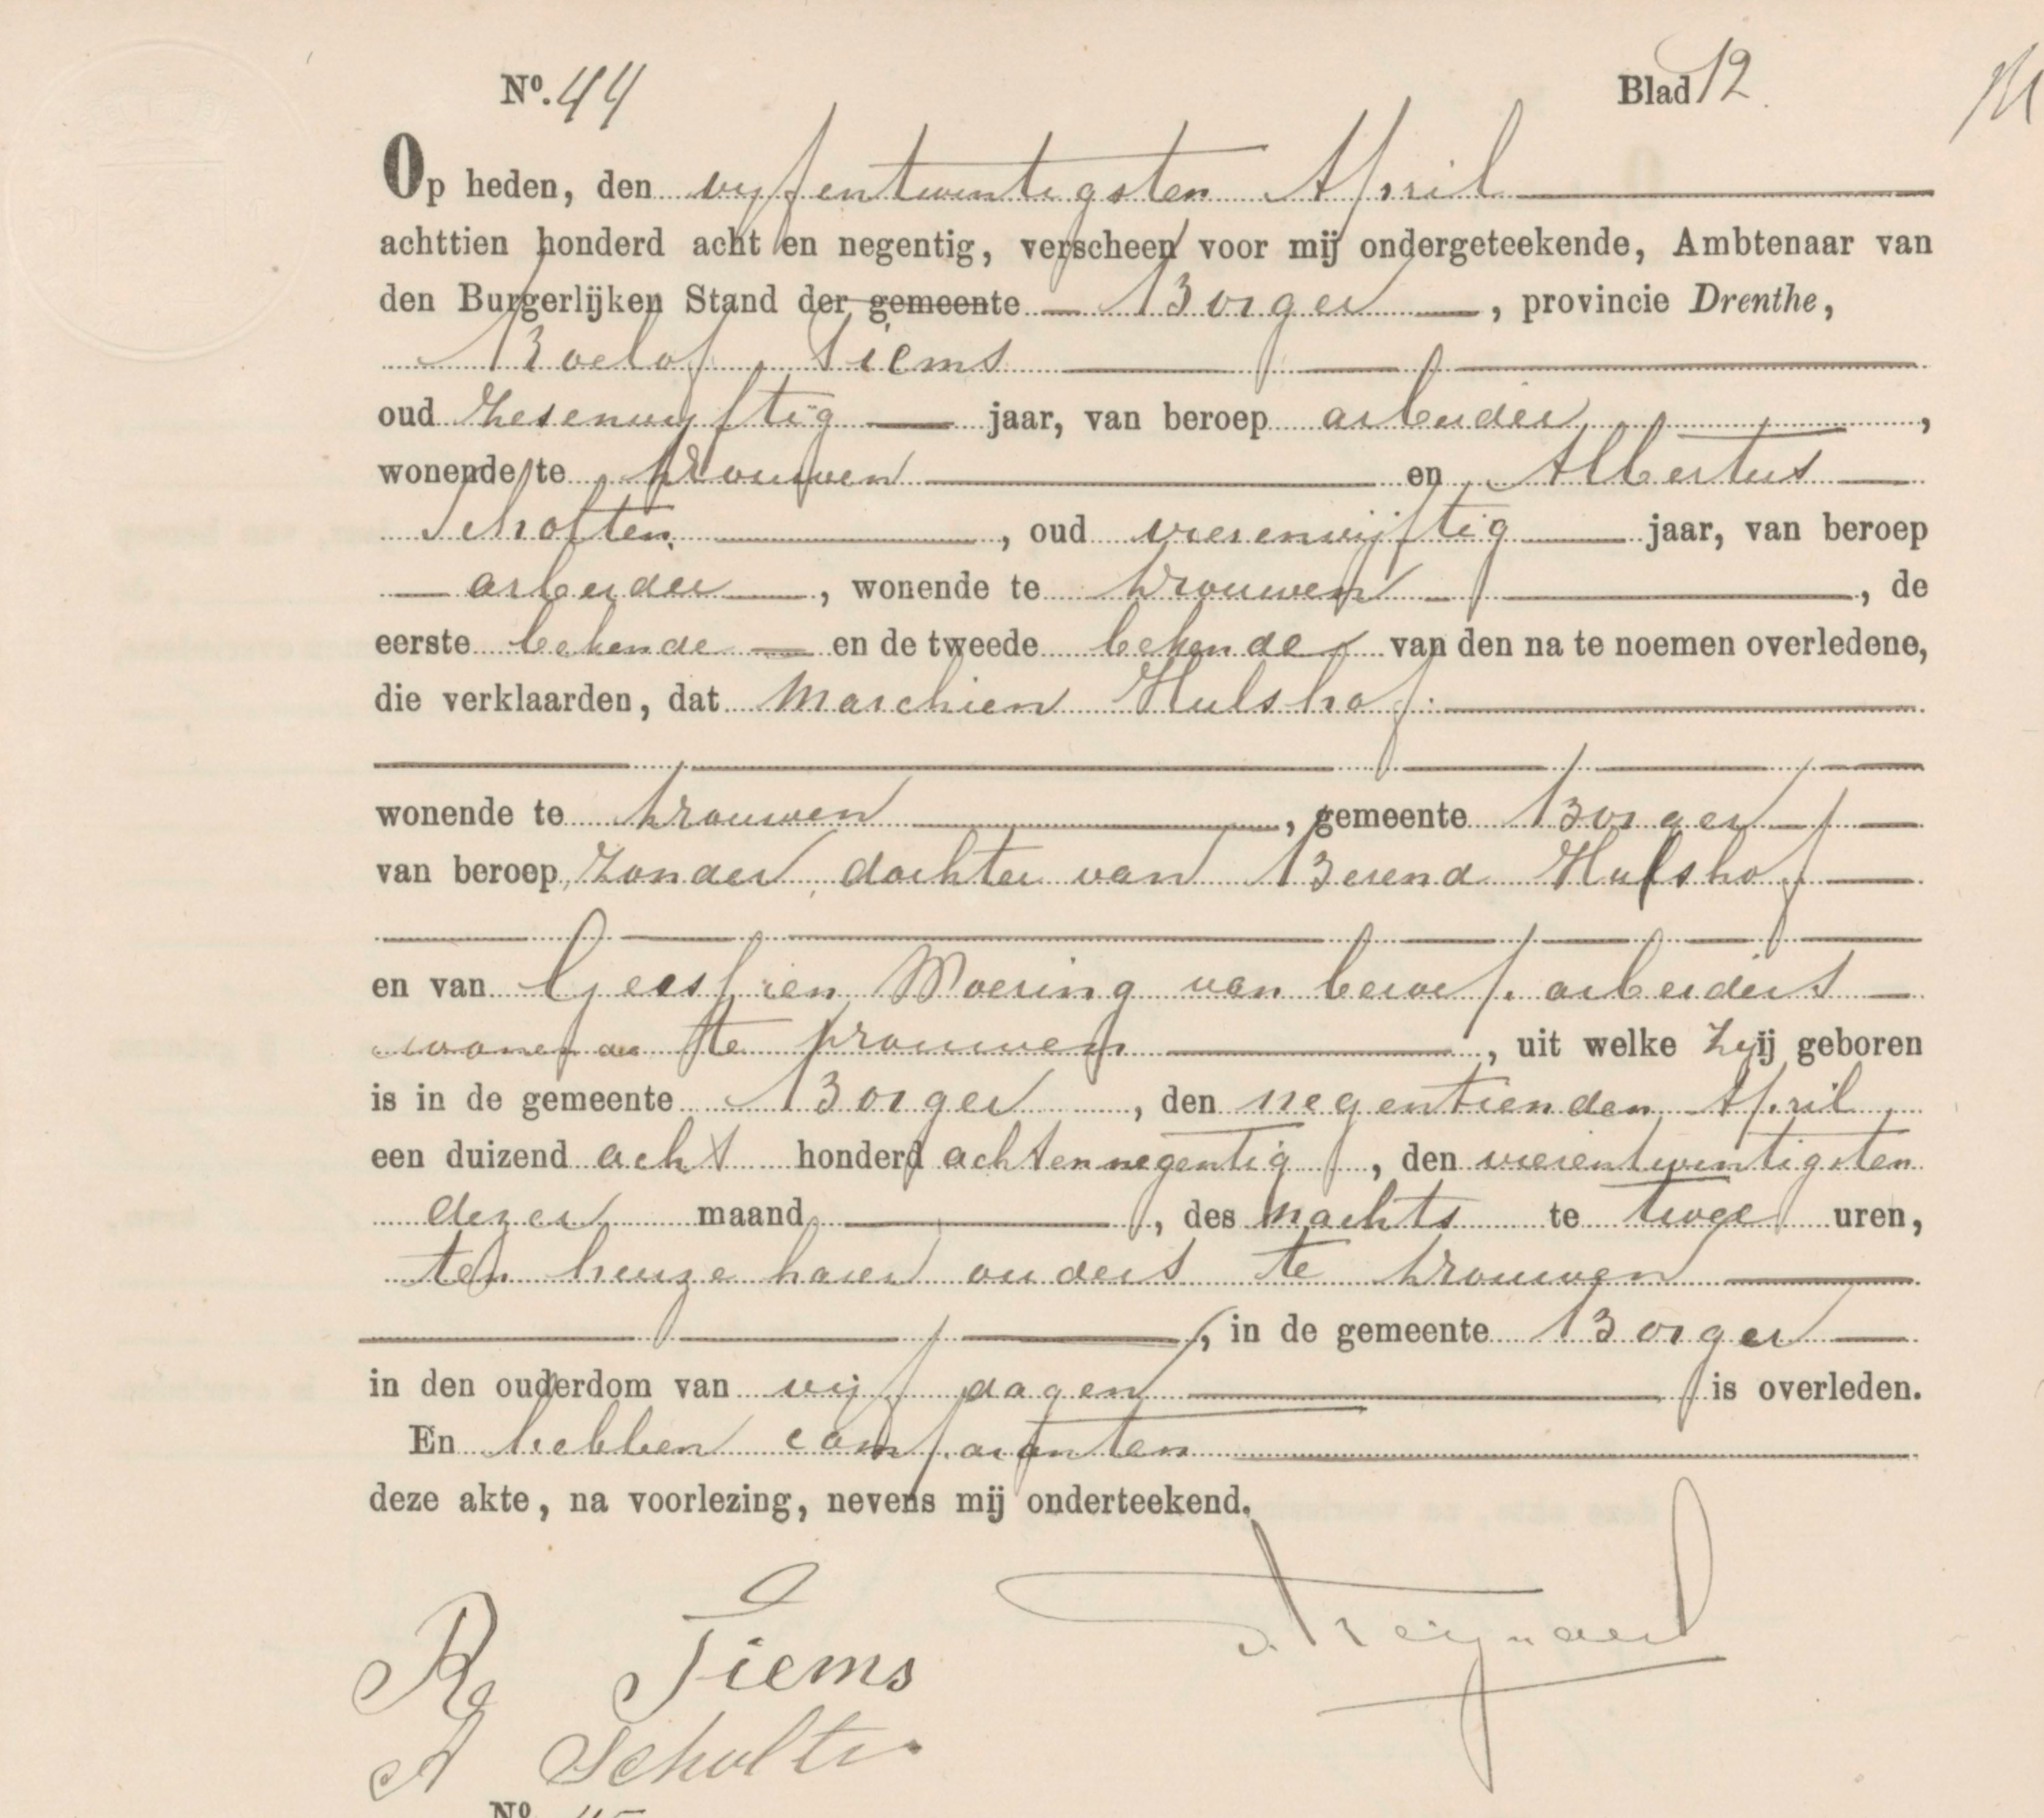 No. 44 Blad 12
Op heden, den vyfentwintigsten April
achttien honderd acht en negentig, verscheen voor mij ondergeteekende, Ambtenaar van
den Burgerlijken Stand der gemeente Borger, provincie Drenthe,
Roelof Tiems
oud zesenvyftig jaar, van beroep arbeider,
wonende te Drouwen en Albertus
Scholten, oud vierenvijftig jaar, van beroep
arbeider, wonende te Drouwen, de
eerste bekende en de tweede bekende van den na te noemen overledene,
die verklaarden, dat Marchien Hulshof
wonende te Drouwen, gemeente Borger
van beroep zonder, dochter van Berend Hulshof
en van Geessien Moering van beroep arbeiders
wonende te Drouwen, uit welke zyij geboren
is in de gemeente Borger, den negentienden April
een duizend acht honderd achtennegentig, den vierentwintigsten
dezer maand, des nachts te twee uren,
ten huize harer ouders te Drouwen
, in de gemeente Borger
in den ouderdom van vijf dagen is overleden.
En hebben comparanten
deze akte, na voorlezing, nevens mij onderteekend.
R Tiems
A Scholten
No.